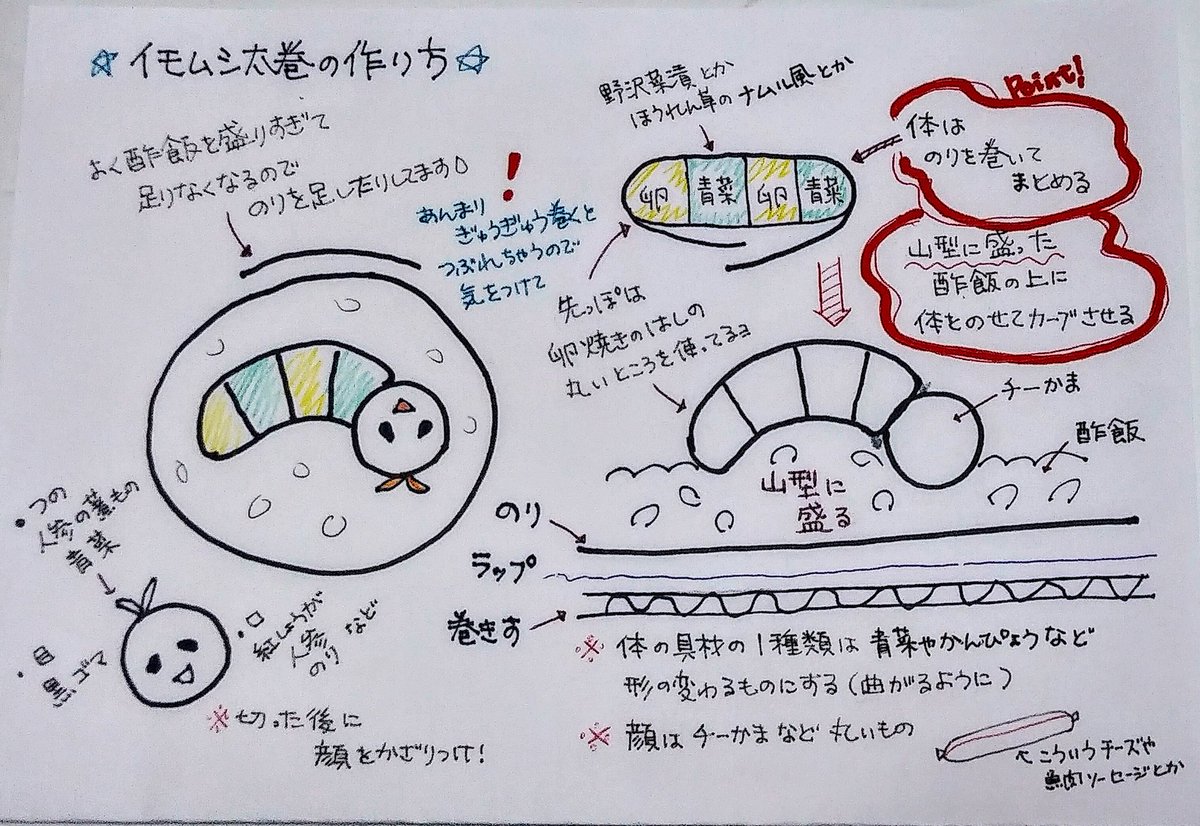 ☆イモムシ太巻の作り方☆
よく酢飯を盛りすぎて
足りなくなるので
のりを足したりしてます
!
あんまり
ぎゅうぎゅう巻くと
つぶれちゃうので
気をつけて
野沢菜漬とか
ほうれん草のナムル風とか
卵 青菜 卵 青菜
Point!
体は
のりを巻いて
まとめる
山型に盛った
酢飯の上に
体をのせてカーブさせる
先っぽは
卵焼きのはしの
丸いところを使ってるヨ
チーかま
酢飯
山型に
盛る
のり
ラップ
巻きす
・つの
人参の葉もの
青菜
・目
黒ゴマ
・口
紅しょうが
人参
のり など
※切った後に
顔をかざりつけ!
※ 体の具材の1種類は 青菜やかんぴょうなど
形の変わるものにする(曲がるように)
※ 顔は チーかまなど 丸いもの
こういうチーズや
魚肉ソーセージとか